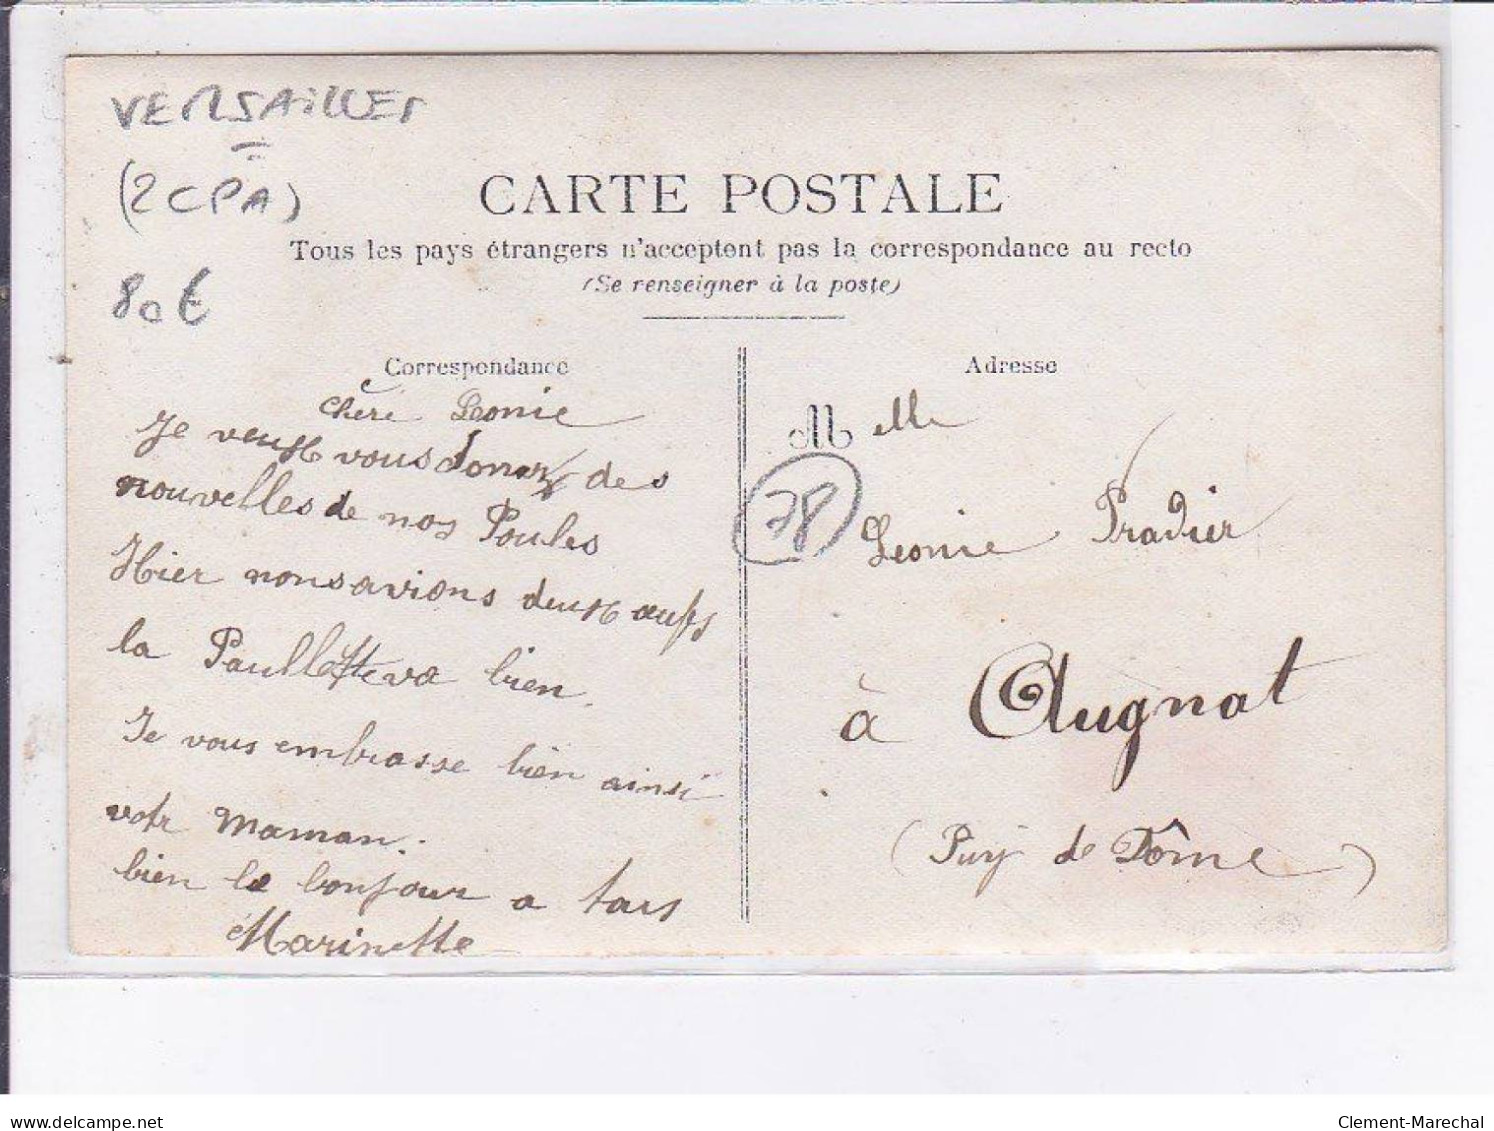 VERSAILLES
(2 CPA)
80€
CARTE POSTALE
Tous les pays étrangers n'acceptent pas la correspondance au recto
(Se renseigner à la poste)
Correspondance
Chère Leonie
Je veux vous donner des
nouvelles de nos Poules
Hier nous avions deux œufs
la Paullette va bien.
Je vous embrasse bien ainsi
votr maman.
bien le bonjour a tous
Marinette
Adresse
Melle
78
Leonie Pradier
à Augnat
(Puy de Dôme)
delcampe.net
Clement-Marechal